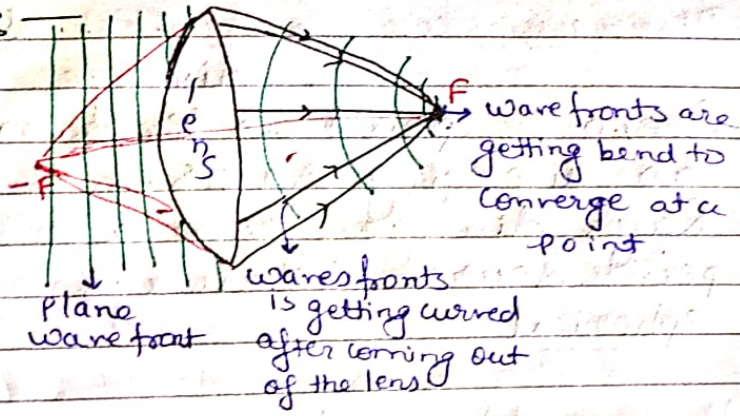 lens
F
-F
wavefronts are
getting bend to
converge at a
point.
plane
wavefront
waves fronts
is getting curved
after coming out
of the lens